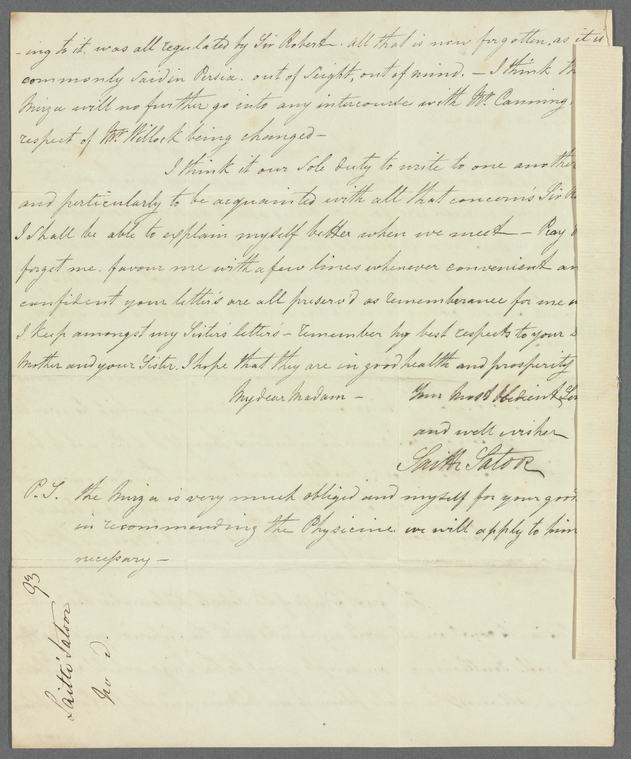 -ing to it, was all regulated by Sir Robert. all that is now forgotten, as it is
commonly said in Persia. out of seight, out of mind. - I think th
Mirza will no further go into any intercourse with Mr. Canning
respect of Mr. Willock being changed -
I think it our Sole duty to write to one another
and particularly to be acquainted with all that concern's Sir
I shall be able to explain myself better when we meet - Pray
forget me. favour me with a few lines whenever convenient an
confident your letters are all preserv'd as rememberance for me
I keep amongst my Sister's letters - remember my best respects to your
Mother and your Sister. I hope that they are in good health and prosperity
My dear Madam - Your Most Obedient
and well wisher
Saith Satoor
P.S. the Mirza is very much obliged and myself for your good
in recommending the Physicine we will apply to him
necessary -
Saith Satoor 93